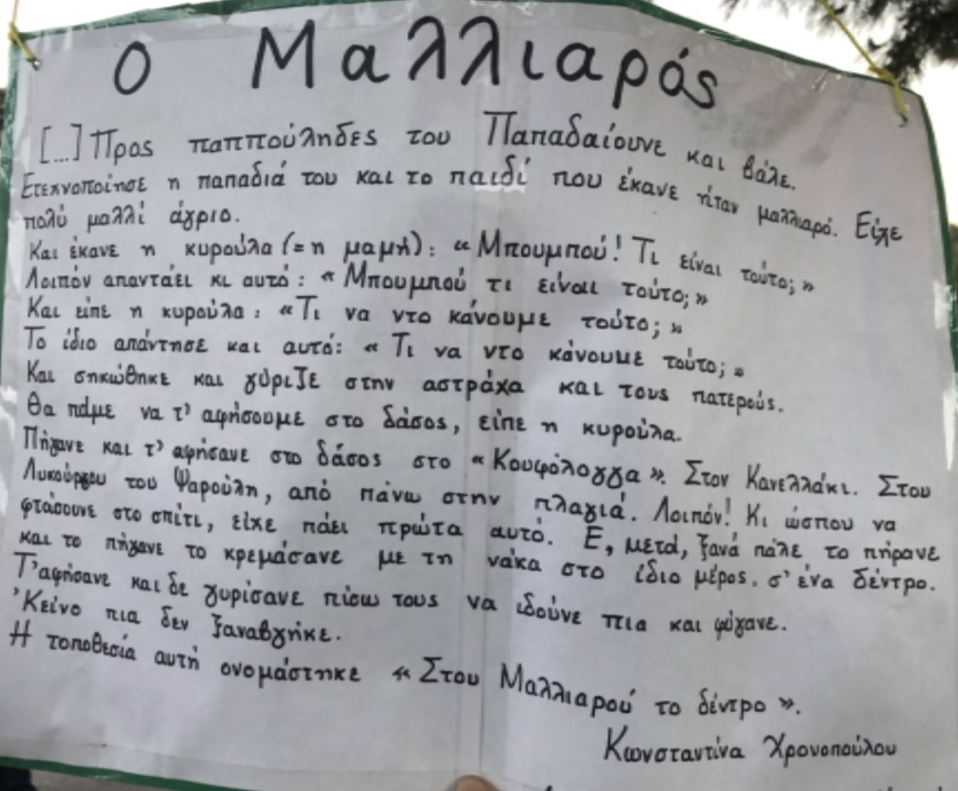 Ο Μαλλιαρός
[...] Προς παππούληδες του Παπαδαίουνε και βάλε.
Ετεχνοποίησε η παπαδιά του και το παιδί που έκανε ήταν μαλλιαρό. Είχε
πολύ μαλλί άγριο.
Και έκανε η κυρούλα (= η μαμή): «Μπουμπού! Τι είναι τούτο;»
Λοιπόν απαντάει κι αυτό: «Μπουμπού τι είναι τούτο;»
Και είπε η κυρούλα: «Τι να ντο κάνουμε τούτο;»
Το ίδιο απάντησε και αυτό: «Τι να ντο κάνουμε τούτο;»
Και σηκώθηκε και γύριζε στην αστράχα και τους πατερούς.
Θα πάμε να τ' αφήσουμε στο δάσος, είπε η κυρούλα.
Πήγανε και τ' αφήσανε στο δάσος στο «Κουφόλογγα». Στον Κανελλάκι. Στου
Λυκούργου του Ψαρούλη, από πάνω στην πλαγιά. Λοιπόν! Κι ώσπου να
φτάσουνε στο σπίτι, είχε πάει πρώτα αυτό. Ε, μετά, ξανά πάλε το πήρανε
και το πήγανε το κρεμάσανε με τη νάκα στο ίδιο μέρος, σ' ένα δέντρο.
Τ' αφήσανε και δε γυρίσανε πίσω τους να ιδούνε πια και φύγανε.
'Κείνο πια δεν ξαναβγήκε.
Η τοποθεσία αυτή ονομάστηκε «Στου Μαλλιαρού το δέντρο».
Κωνσταντίνα Χρονοπούλου